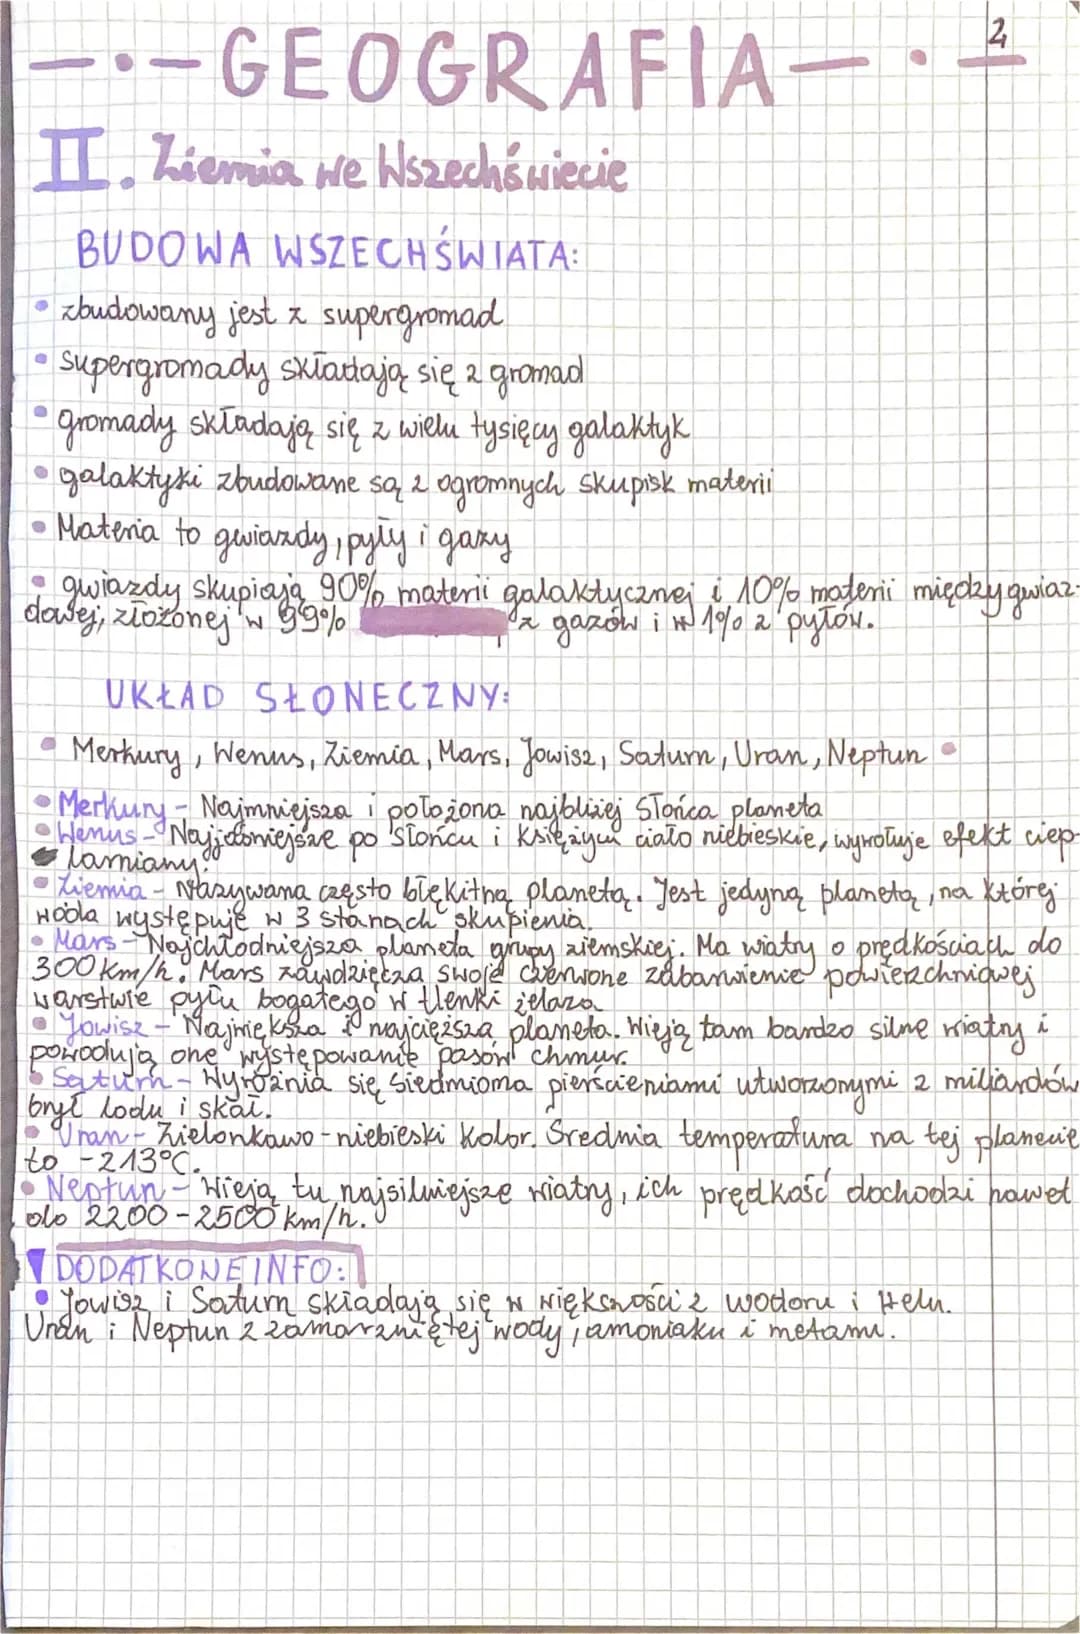 2
GEOGRAFIA
II. Ziemia we Wszechświecie
BUDOWA WSZECHŚWIATA:
• zbudowany jest z supergromad
• supergromady składają się z gromad
• gromady składają się z wielu tysięcy galaktyk
• galaktyki zbudowane są z ogromnych skupisk materii
• Materia to gwiazdy, pyły i gazy
• gwiazdy skupiają 90% materii galaktycznej i 10% materii międzygwiaz-
dowej, złożonej w 99% z gazów i w 1% z pyłów.
UKŁAD SŁONECZNY:
• Merkury, Wenus, Ziemia, Mars, Jowisz, Saturn, Uran, Neptun •
• Merkury - Najmniejsza i położona najbliżej Słońca planeta
• Wenus - Najjaśniejsze po Słońcu i Księżycu ciało niebieskie, wywołuje efekt ciep-
larniany.
• Ziemia - Nazywana często błękitną planetą. Jest jedyną planetą, na której
woda występuje w 3 stanach skupienia.
• Mars - Najchłodniejsza planeta grupy ziemskiej. Ma wiatry o prędkościach do
300 km/h. Mars zawdzięcza swoje czerwone zabarwienie powierzchniowej
warstwie pyłu bogatego w tlenki żelaza
• Jowisz - Największa i najcięższa planeta. Wieją tam bardzo silne wiatry i
powodują one występowanie pasów chmur.
• Saturn - Wyróżnia się siedmioma pierścieniami utworzonymi z miliardów
brył lodu i skał.
• Uran - Zielonkawo-niebieski kolor. Średnia temperatura na tej planecie
to -213°C.
• Neptun - Wieją tu najsilniejsze wiatry, ich prędkość dochodzi nawet
do 2200-2500 km/h.
DODATKOWE INFO:
• Jowisz i Saturn składają się w większości z wodoru i Helu.
Uran i Neptun z zamarzniętej wody, amoniaku i metanu.